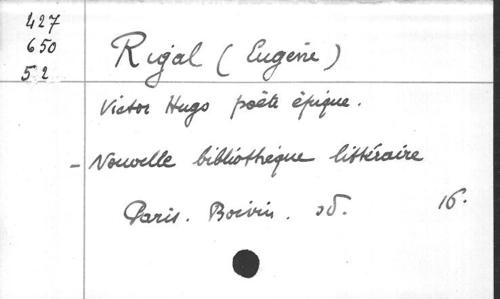 427
650
52
Rigal (Eugène)
Victor Hugo poète épique.
- Nouvelle bibliothèque littéraire
Paris. Boivin. sd. 16.